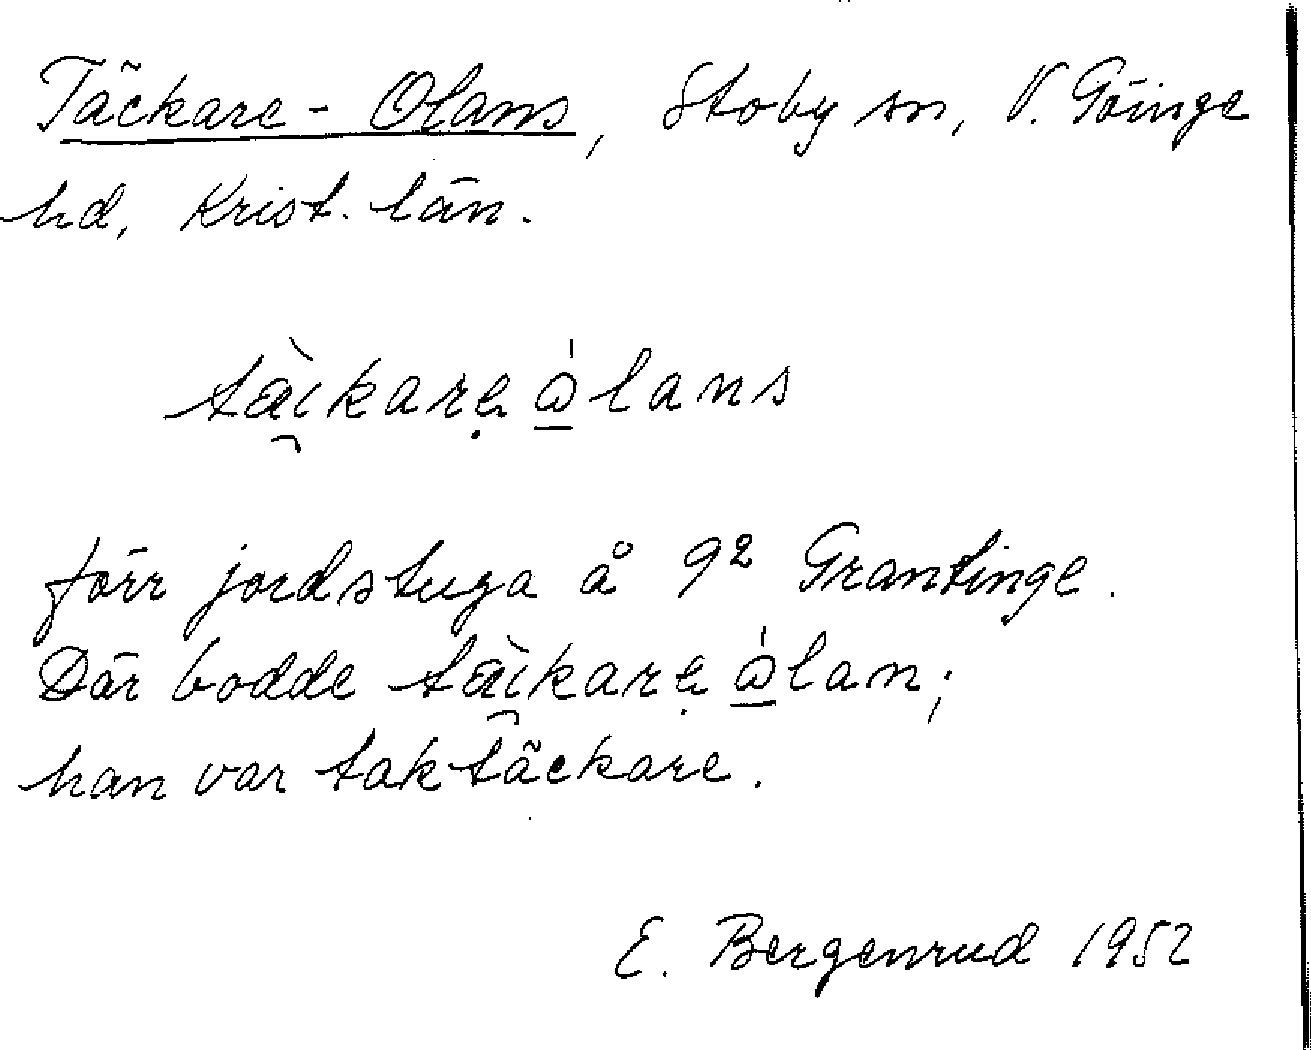 Täckare-Olans, Stoby sn, V. Göinge
hd, Krist. län.
tæ̀ckarę ώ̲lans
förr jordstuga å 9² Grantinge.
Där bodde tæ̀ckarę ώ̲lan;
han var taktäckare.
E. Bergenrud 1952